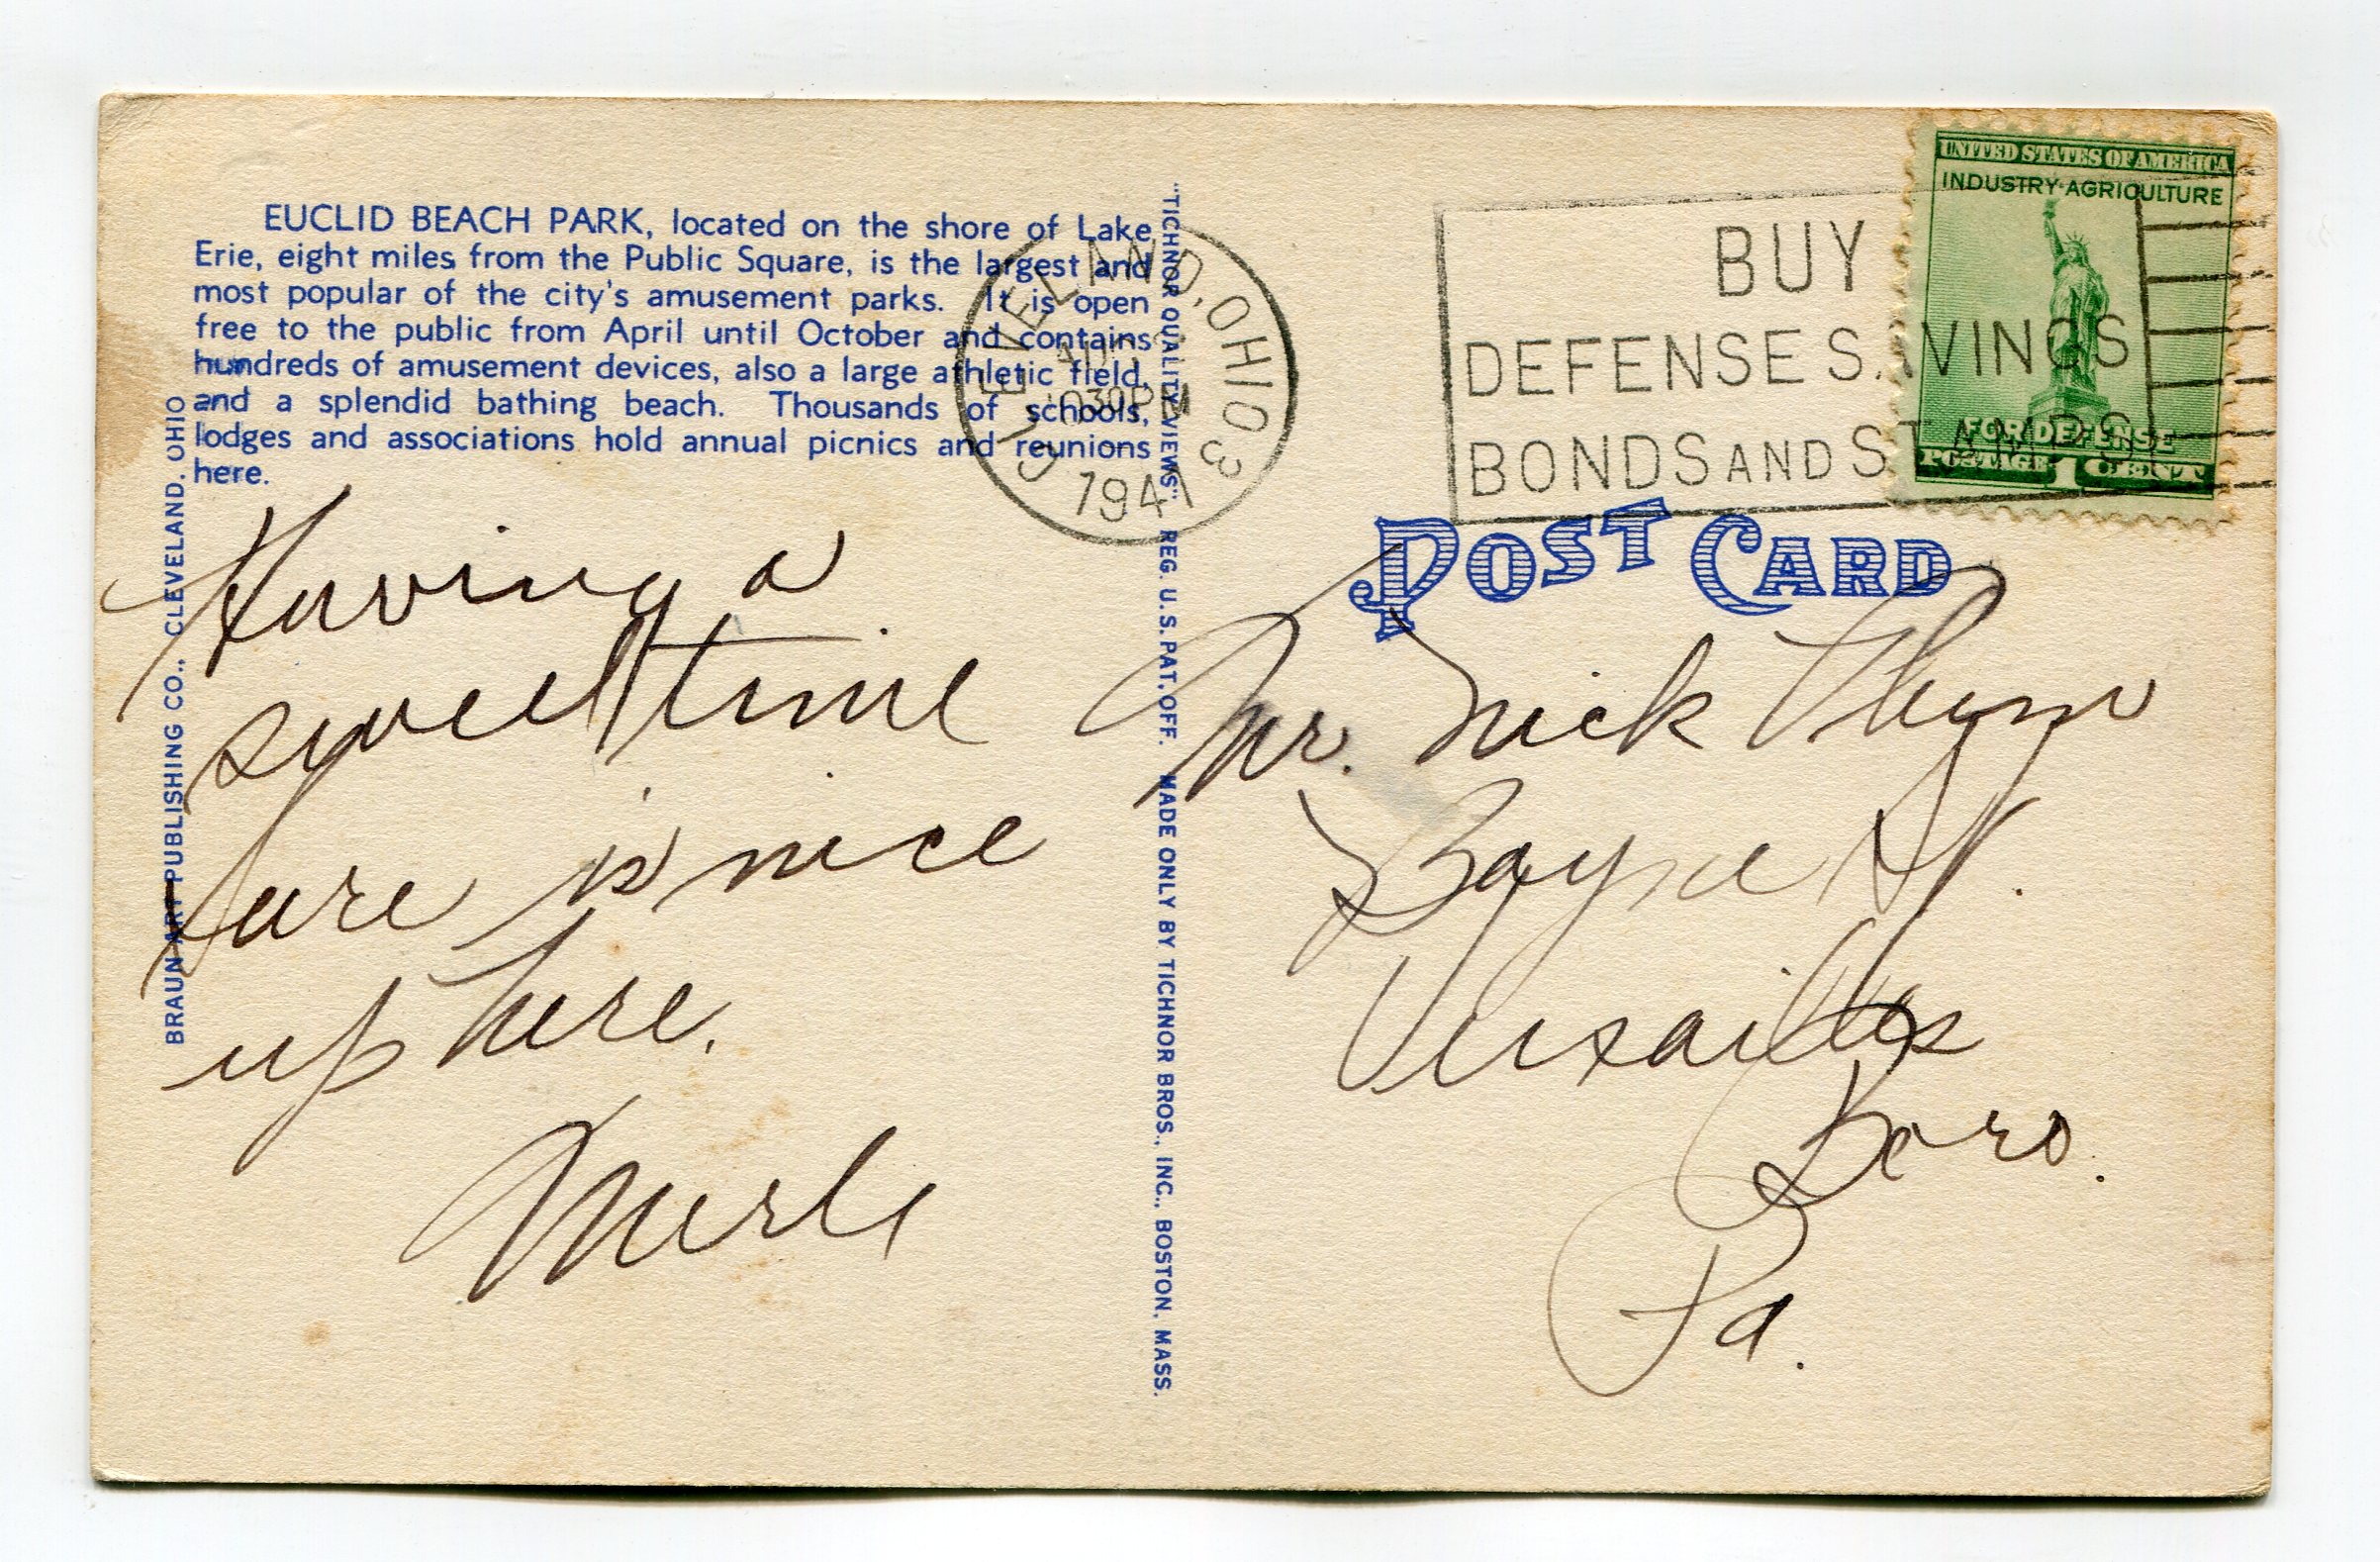 EUCLID BEACH PARK, located on the shore of Lake
Erie, eight miles from the Public Square, is the largest and
most popular of the city's amusement parks. It is open
free to the public from April until October and contains
hundreds of amusement devices, also a large athletic field,
and a splendid bathing beach. Thousands of schools,
lodges and associations hold annual picnics and reunions
here.
BRAUN ART PUBLISHING CO., CLEVELAND, OHIO
Having a
swell time
sure is nice
up here.
Merle
"TICHNOR QUALITY VIEWS" REG. U.S. PAT. OFF. MADE ONLY BY TICHNOR BROS., INC., BOSTON, MASS.
CLEVELAND, OHIO 3
30 PM
1941
BUY
DEFENSE SAVINGS
BONDS AND STAMPS
UNITED STATES OF AMERICA
INDUSTRY·AGRICULTURE
FOR DEFENSE
POSTAGE 1 CENT
POST CARD
Mr. Nick
Bayne St.
Versailles
Boro.
Pa.